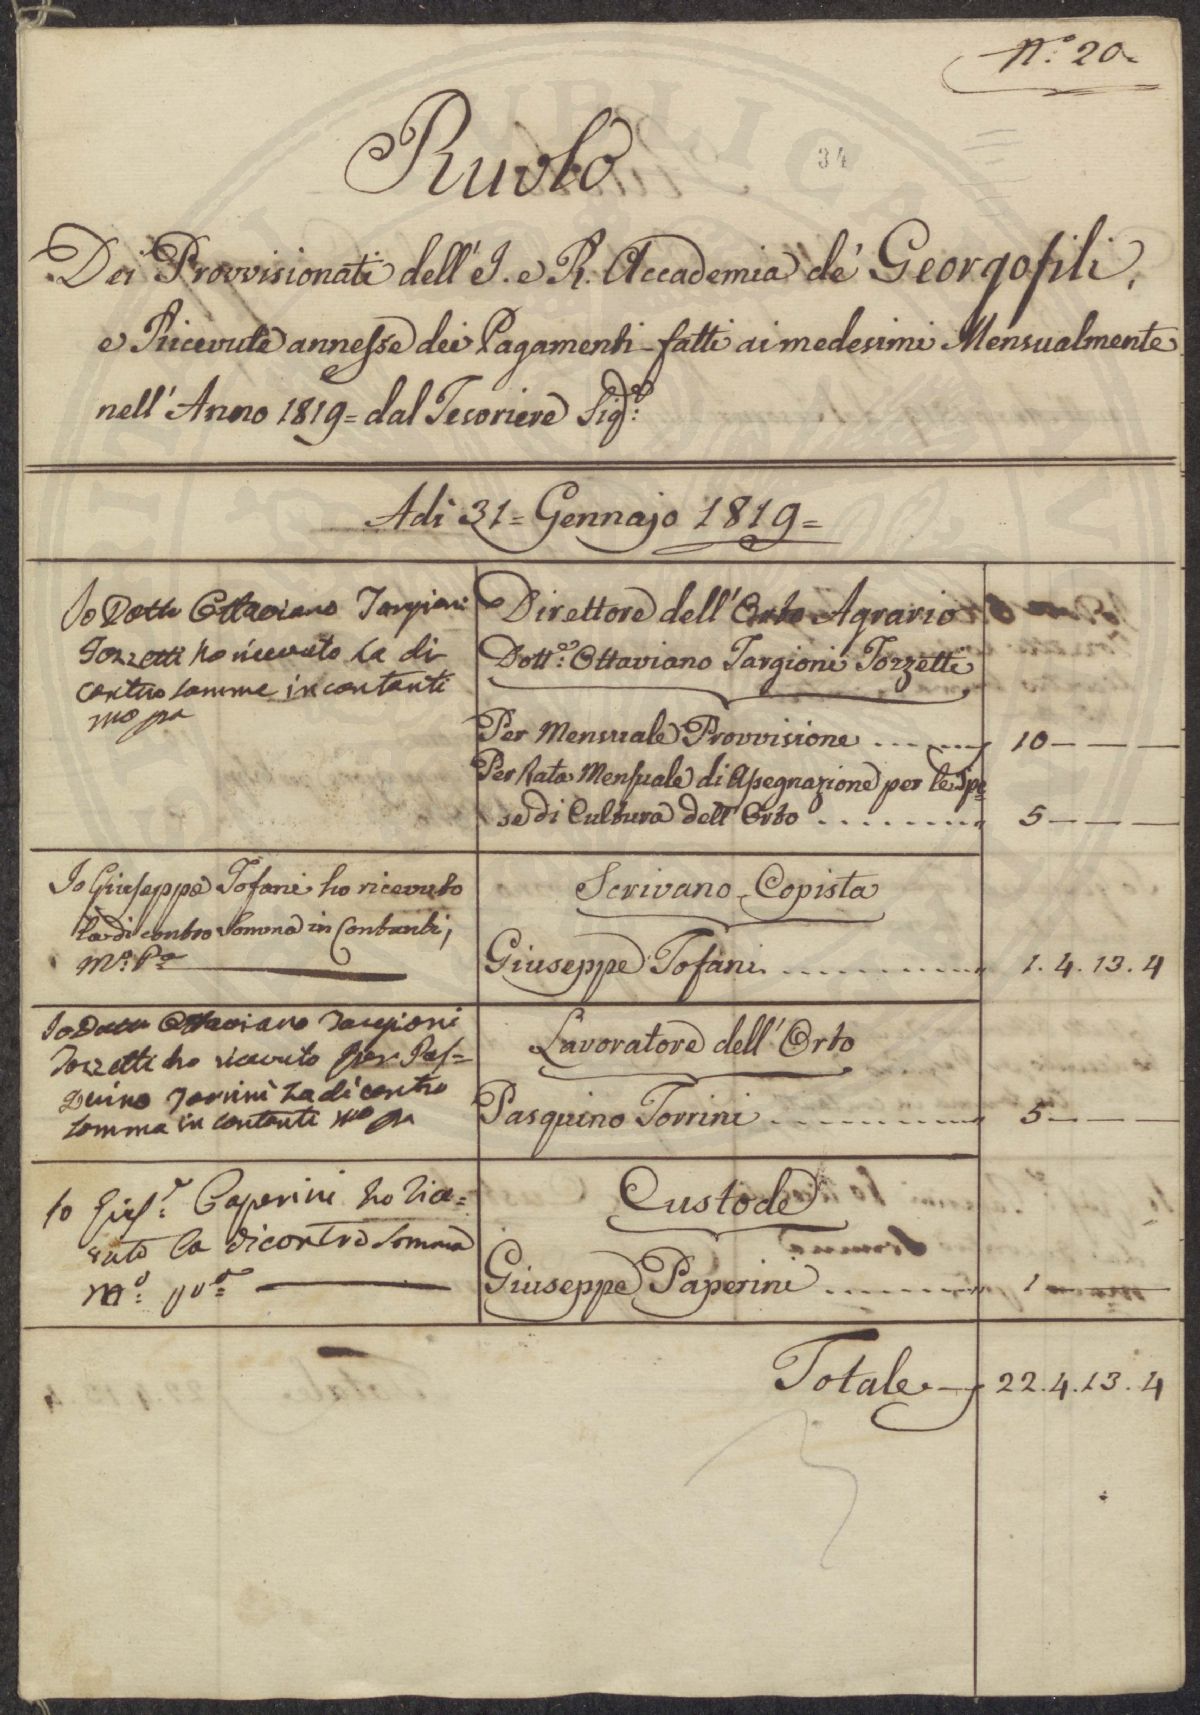 N.º 20
34
Ruolo
Dei Provvisionati dell'I. e R. Accademia de' Georgofili,
e Ricevute annesse dei Pagamenti fatti ai medesimi Mensualmente
nell'Anno 1819= dal Tesoriere Sig.re
Adì 31= Gennajo 1819=
Io Dott. Ottaviano Targioni
Tozzetti ho ricevuto la di
contro somma in contanti
mo pa
Direttore dell'Orto Agrario
Dott.e Ottaviano Targioni Tozzetti
Per Mensuale Provvisione ........ 10 — — —
Per Rata Mensuale di Assegnazione per le Spe=
se di Cultura dell'Orto ......... 5 — — —
Io Giuseppe Tofani ho ricevuto
la di contro Somma in Contanti,
M.o P.a
Scrivano Copista
Giuseppe Tofani ............ 1. 4. 13. 4
Io Dott. Ottaviano Targioni
Tozzetti ho ricevuto per Pas=
quino Torrini La di contro
somma in contanti mo pa
Lavoratore dell'Orto
Pasquino Torrini ............ 5 — — —
Io Gius.e Paperini ho rice=
vuto la dicontro Somma
M.o p.a
Custode
Giuseppe Paperini ......... 1 — — —
Totale 22. 4. 13. 4